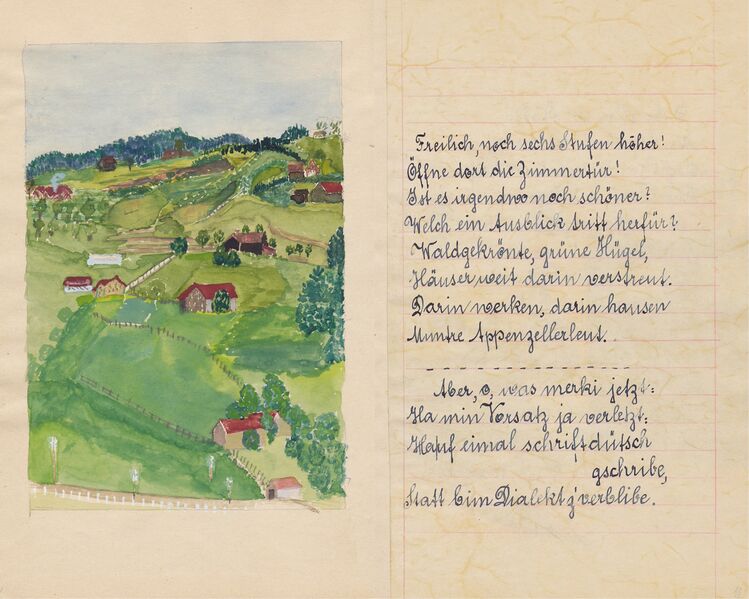 Freilich, noch sechs Stufen höher!
Öffne dort die Zimmertür!
Ist es irgendwo noch schöner?
Welch ein Ausblick tritt herfür?
Waldgekrönte, grüne Hügel,
Häuser weit darin verstreut.
Darin werken, darin hausen
Muntre Appenzellerleut.
Aber, o, was merki jetzt:
Ha min Vorsatz ja verletzt:
Ha uf eimal schriftdütsch
gschribe,
Statt bim Dialekt z'verblibe.